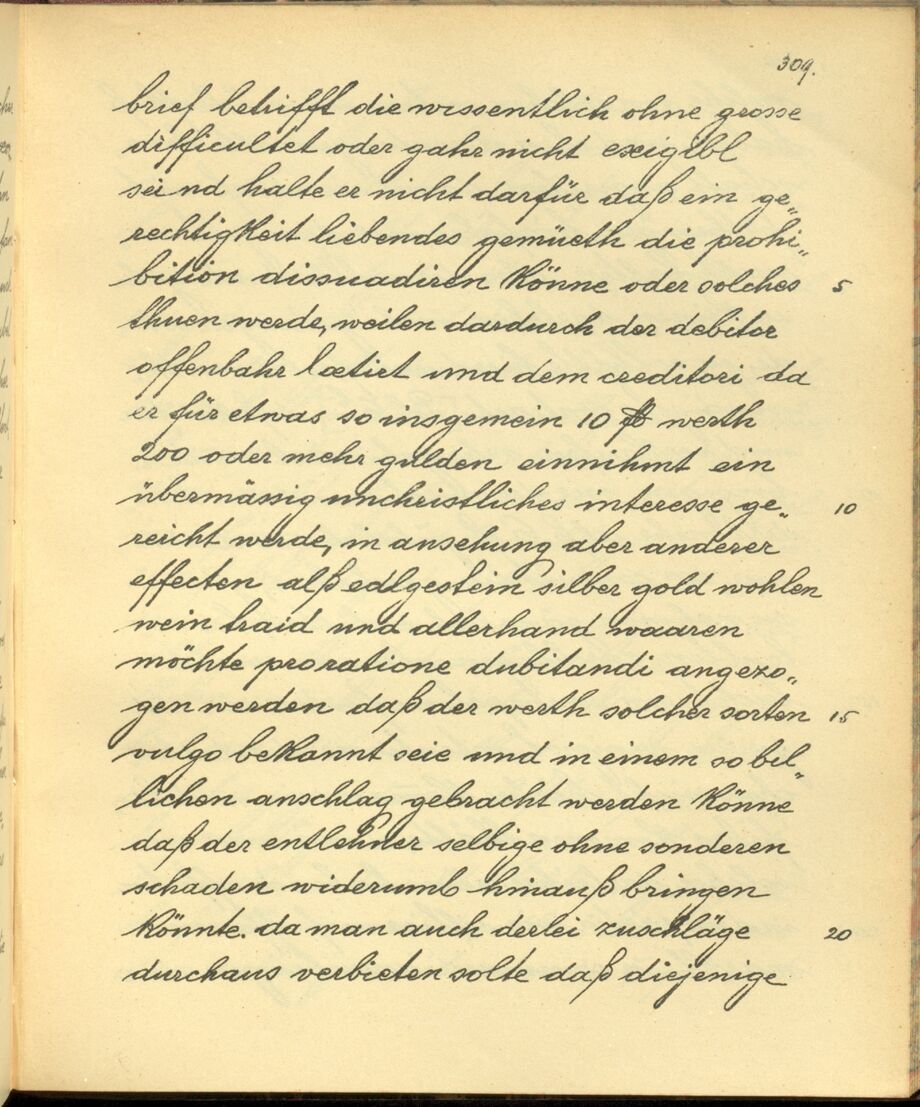 309.
brief betrifft die wissentlich ohne grosse
difficultet oder gahr nicht exigibl
seind halte er nicht darfür daß ein ge„
rechtigkeit liebendes gemüeth die prohi„
bition dissuadiren könne oder solches 5
thuen werde, weilen dardurch der debitor
offenbahr lætirt und dem creditori da
er für etwas so insgemein 10 fl werth
200 oder mehr gulden einnihmt ein
übermässig unchristliches interesse ge„ 10
reicht werde, in ansehung aber anderer
effecten alß edlgestein silber gold wohlen
wein traid und allerhand waaren
möchte pro ratione dubitandi angezo„
gen werden daß der werth solcher sorten 15
vulgo bekannt seie und in einem so bil„
lichen anschlag gebracht werden könne
daß der entlehner selbige ohne sonderen
schaden widerumb hinauß bringen
könnte. da man auch derlei zuschläge 20
durchaus verbieten solte daß diejenige